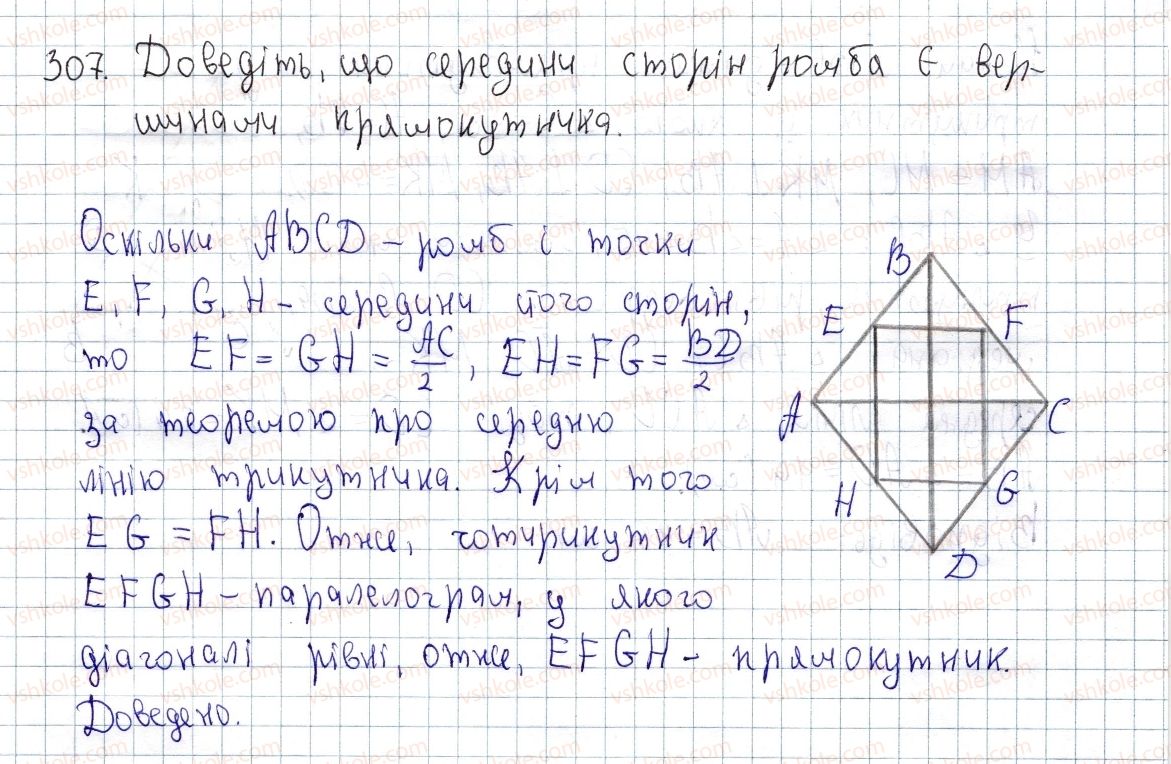 307. Доведіть, що середини сторін ромба є вер-
шинами прямокутника.
Оскільки ABCD – ромб і точки
E, F, G, H – середини його сторін,
то EF = GH = AC/2, EH = FG = BD/2
за теоремою про середню
лінію трикутника. Крім того
EG = FH. Отже, чотирикутник
EFGH – паралелограм, у якого
діагоналі рівні, отже, EFGH – прямокутник.
Доведено.
B
E F
A C
H G
D
vshkole.com